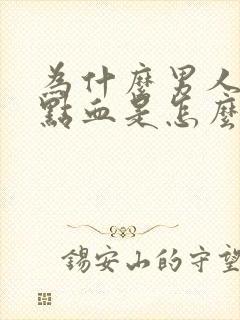 為什麼男人
點血是怎麼
錫安山的守望